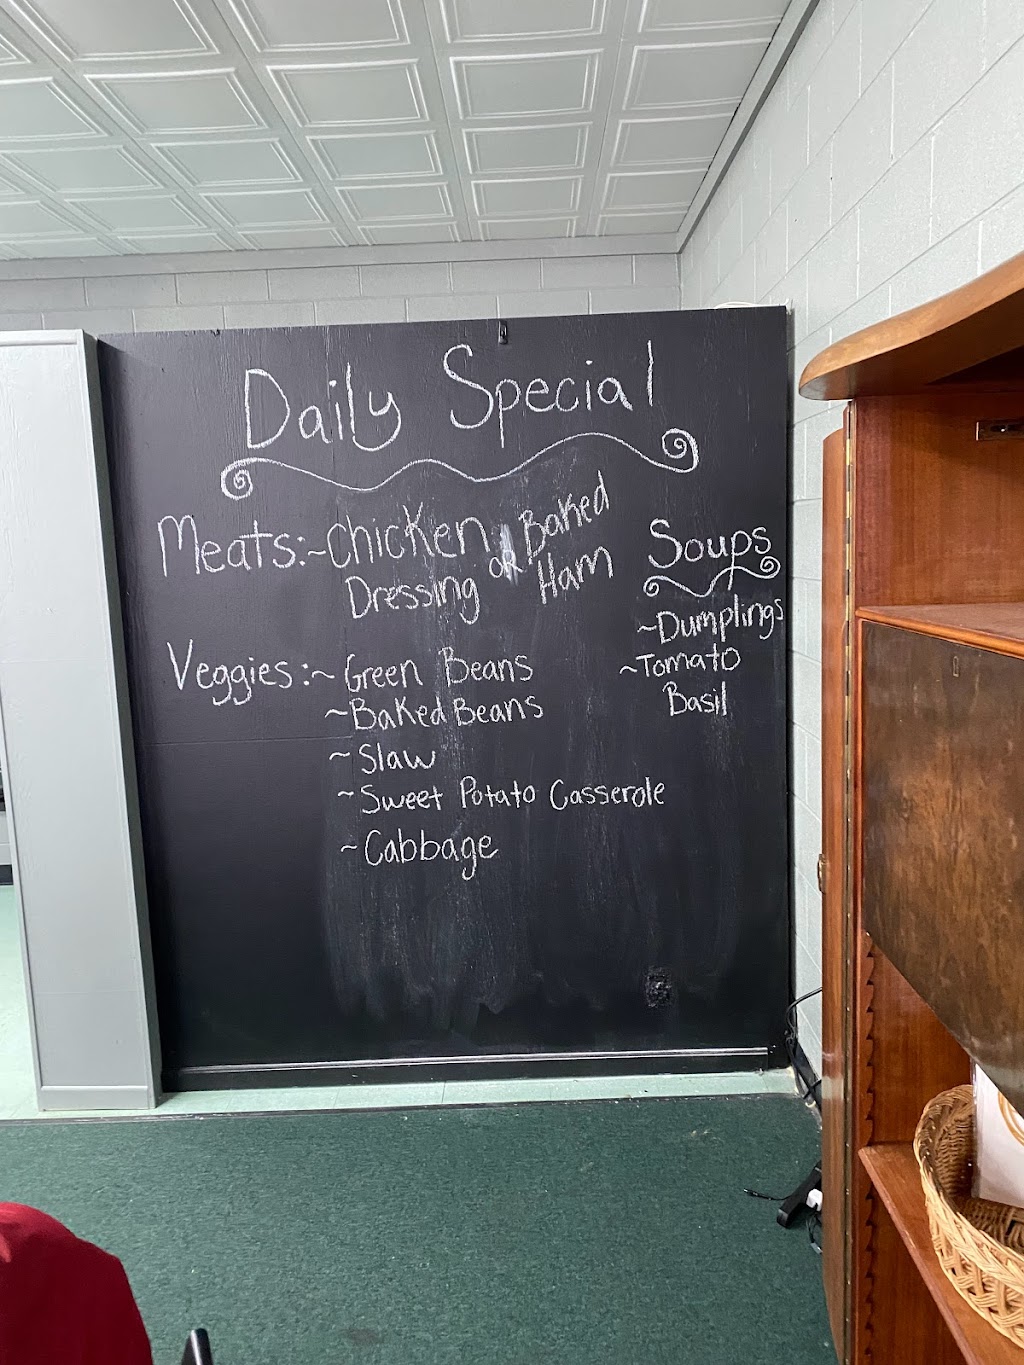 Daily Special
Meats:~Chicken
Dressing
OR
Baked
Ham
Veggies:~Green Beans
~Baked Beans
~Slaw
~Sweet Potato Casserole
~Cabbage
Soups
~Dumplings
~Tomato
Basil